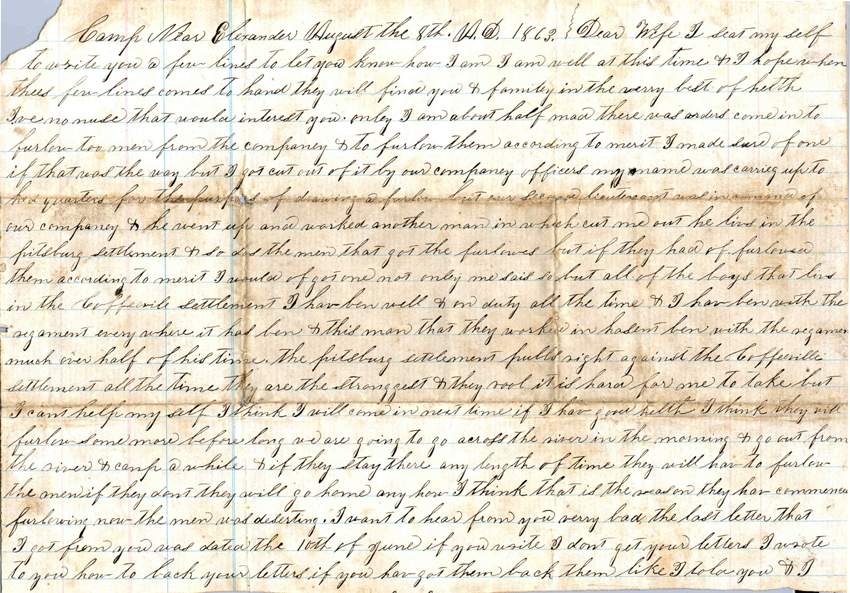 Camp Near Elexander August the 8th. A.D. 1863. } Dear Wife I seat my self
to write you a few lines to let you know how I am I am well at this time & I hope when
thees few lines comes to hand they will find you & familey in the verry best of helth
I ve no nuse that would interest you. only I am about half mad there was orders come in to
furlow too men from the companey & to furlow them according to merit I made sure of one
if that was the way but I got cut out of it by our companey officers my name was carried up to
hed quarters for the purpos of drawing a furlow but our second lieutenant was in comand of
our companey & he went up and worked another man in which cut me out he livs in the
pitsburg settlement & so dos the men that got the furlowes but if they had of furlowed
them according to merit I would of got one not only me sais so but all of the boys that livs
in the Coffeevile settlement I hav ben well & on duty all the time & I hav ben with the
regament every where it has ben & this man that they worked in hasent ben with the regamen
much over half of his time. the pitsburg settlement pulls right against the Coffeeville
settlement all the time they are the stronggest & they rool it is hard for me to take but
I cant help my self I think I will come in next time if I hav good helth I think they will
furlow some more before long we are going to go across the river in the morning & go out from
the river & camp a while & if they stay there any length of time they will hav to furlow
the men if they dont they will go home any how I think that is the reason they hav commence
furlowing now the men was deserting. I want to hear from you verry bad the last letter that
I got from you was dated the 10th of June if you write I dont get your letters I wrote
to you how to back your letters if you hav got them back them like I told you & I